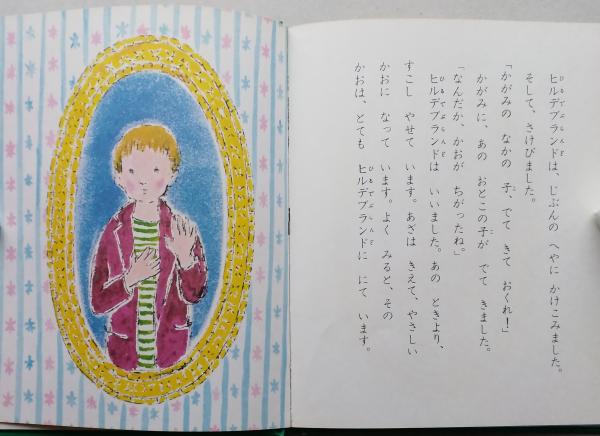 ヒルデブランドは、じぶんの へやに かけこみました。
そして、さけびました。
「かがみの なかの 子、でて きて おくれ！」
かがみに、あの おとこの子が でて きました。
「なんだか、かおが ちがったね。」
ヒルデブランドは いいました。あの ときより、
すこし やせて います。あざは きえて、やさしい
かおに なって います。よく みると、その
かおは、とても ヒルデブランドに にて います。